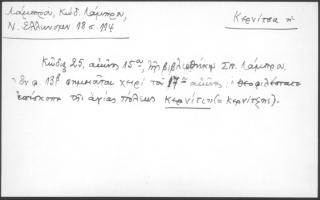 Λάμπρου, Κώδ. Λάμπρου,
Ν. Ἑλληνομν. 18 σ. 114
Κερνίτσα ἡ
Κῶδιξ 25, αἰῶνος 15ου, τῇ βιβλιοθήκῃ Σπ. Λάμπρου.
Ἐν φ. 13β σημειοῦται χειρὶ τοῦ 17ου αἰῶνος: Θεοφιλέστατε
ἐπίσκοπε τῆς ἁγίας πόλεως Κερνίτζης (= Κερνίτσης).